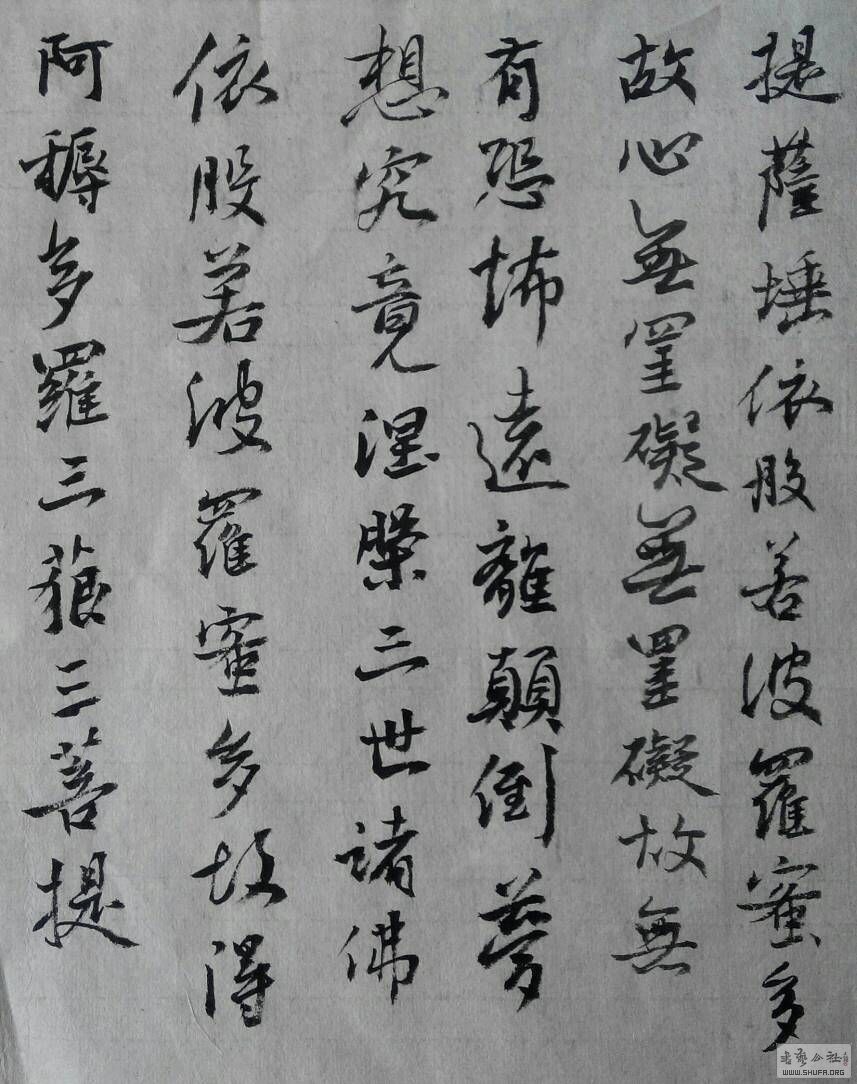 提薩埵依般若波羅蜜多
故心無罣礙無罣礙故無
有恐怖遠離顛倒夢
想究竟涅槃三世諸佛
依般若波羅蜜多故得
阿耨多羅三藐三菩提
书艺公社
WWW.SHUFA.ORG